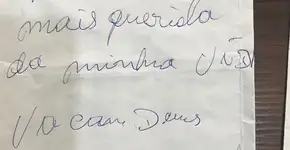 mais querida
da minha VIDA
Va com Deus